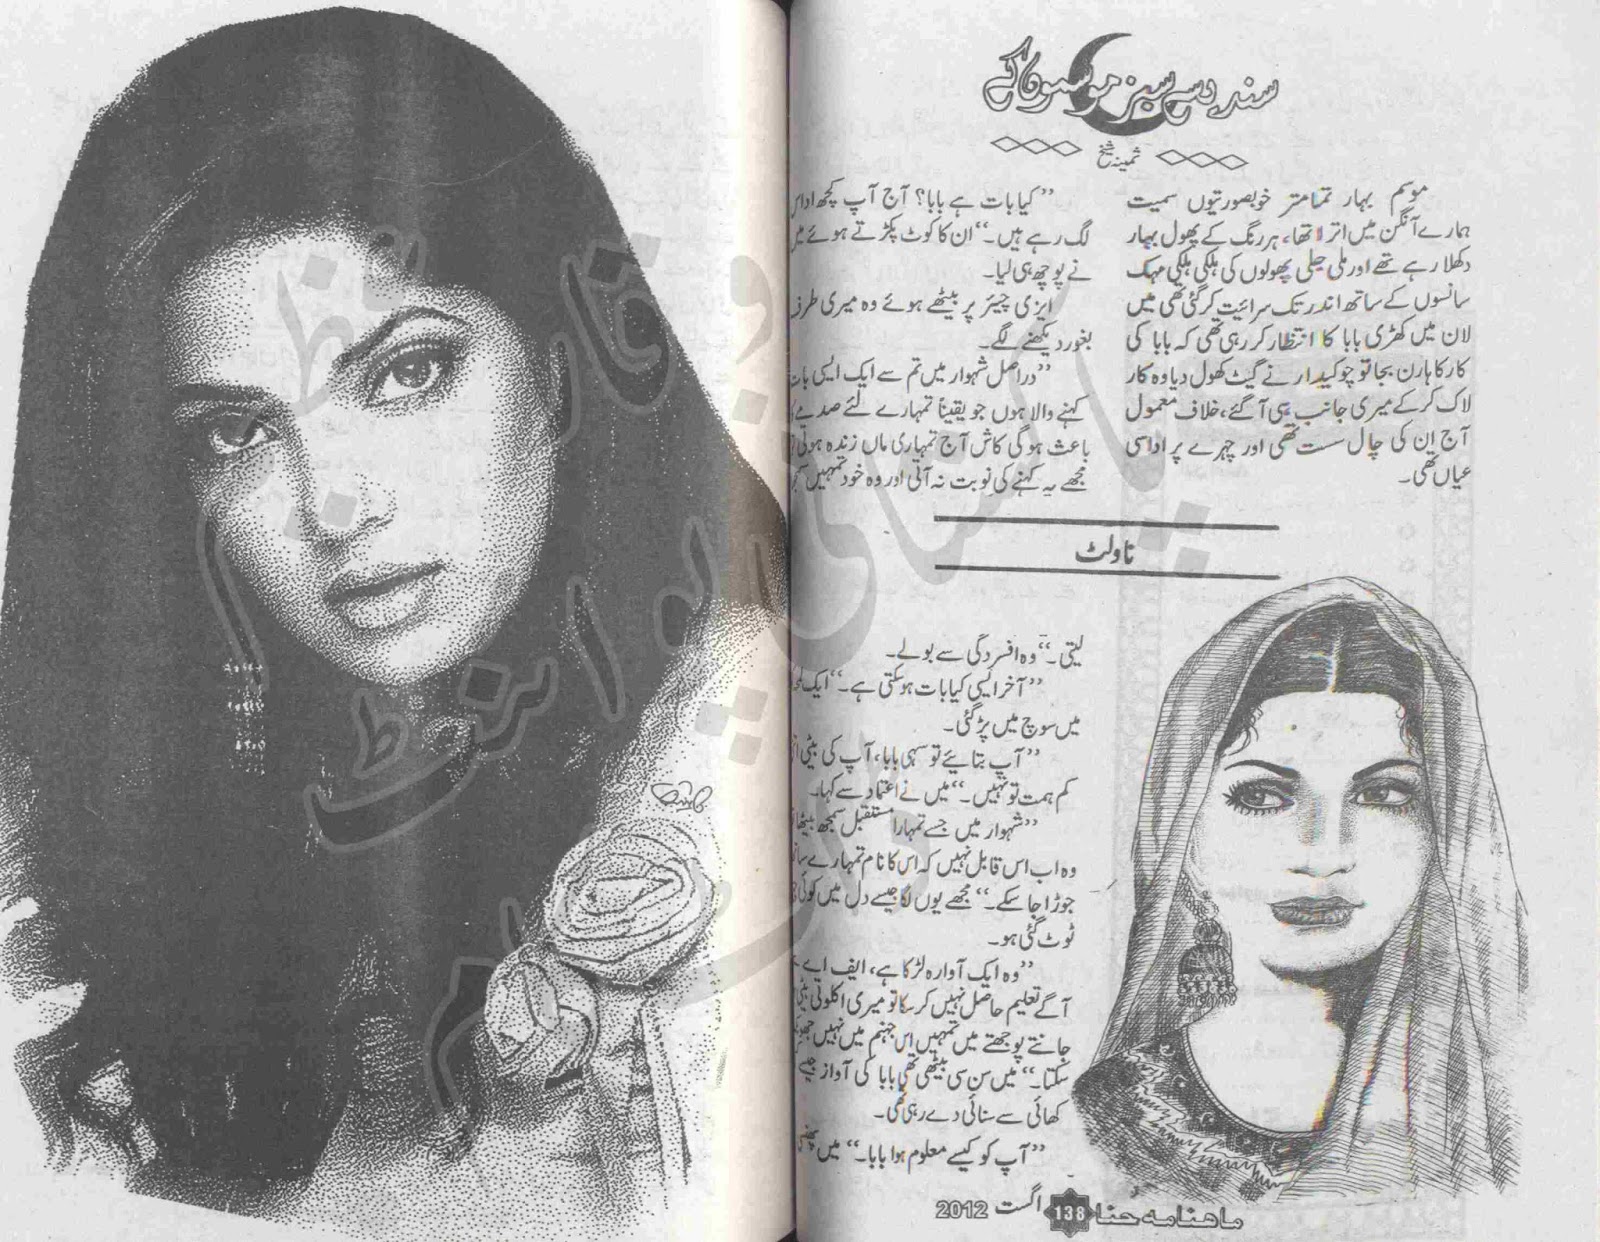 سندیسے سبز موسموں کے
ثمینہ شیخ
موسم بہار تمامتر خوبصورتیوں سمیت
ہمارے آنگن میں اترا تھا، ہر رنگ کے پھول بہار
دکھلا رہے تھے اور ملی جلی پھولوں کی ہلکی ہلکی مہک
سانسوں کے ساتھ اندر تک سرائیت کر گئی تھی میں
لان میں کھڑی بابا کا انتظار کر رہی تھی کہ بابا کی
کار کا ہارن بجا تو چوکیدار نے گیٹ کھول دیا وہ کار
لاک کر کے میری جانب ہی آ گئے، خلاف معمول
آج ان کی چال سست تھی اور چہرے پر اداسی
عیاں تھی۔
”کیا بات ہے بابا؟ آج آپ کچھ اداس
لگ رہے ہیں۔“ ان کا کوٹ پکڑتے ہوئے میں
نے پوچھ ہی لیا۔
ایزی چیئر پر بیٹھے ہوئے وہ میری طرف
بغور دیکھنے لگے۔
”دراصل شہوار میں تم سے ایک ایسی بات
کہنے والا ہوں جو یقیناً تمہارے لئے صدمے
باعث ہو گی کاش آج تمہاری ماں زندہ ہوتی
مجھے یہ کہنے کی نوبت نہ آتی اور وہ خود تمہیں
ناولٹ
لیتی۔“ وہ افسردگی سے بولے۔
”آخر ایسی کیا بات ہو سکتی ہے۔“ ایک
میں سوچ میں پڑ گئی۔
”آپ بتایئے تو سہی بابا، آپ کی بیٹی
کم ہمت تو نہیں۔“ میں نے اعتماد سے کہا۔
”شہوار میں جسے تمہارا مستقبل سمجھ بیٹھا
وہ اب اس قابل نہیں کہ اس کا نام تمہارے
جوڑا جا سکے۔“ مجھے یوں لگا جیسے دل میں کوئی
ٹوٹ گئی ہو۔
”وہ ایک آوارہ لڑکا ہے، ایف اے
آگے تعلیم حاصل نہیں کر سکا تو میری اکلوتی بیٹی
جانتے پوجھتے میں تمہیں اس جہنم میں نہیں
سکتا۔“ میں سن سی بیٹھی تھی بابا کی آواز جیسے
کھائی سے سنائی دے رہی تھی۔
”آپ کو کیسے معلوم ہوا بابا۔“ میں
ماہنامہ حنا 138 اگست 2012
پاکستانی پوائنٹ
وقار عظیم